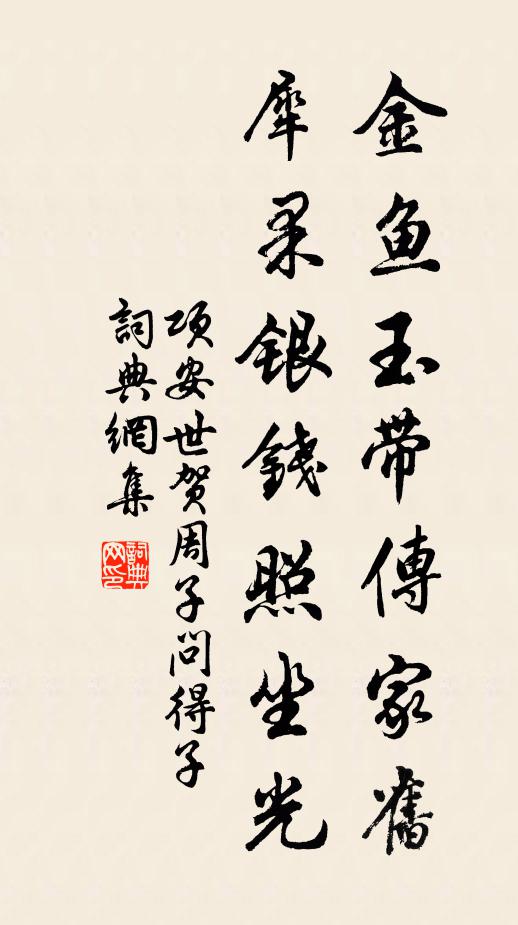 金鱼玉带傳家舊
犀果銀錢照坐光
项安世贺周子問得子
詞典網集
詞典网印